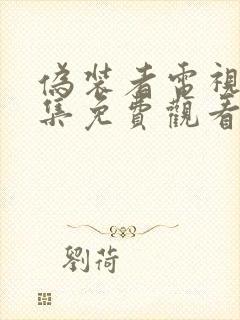 偽裝者電視
集免費觀看
劉荷